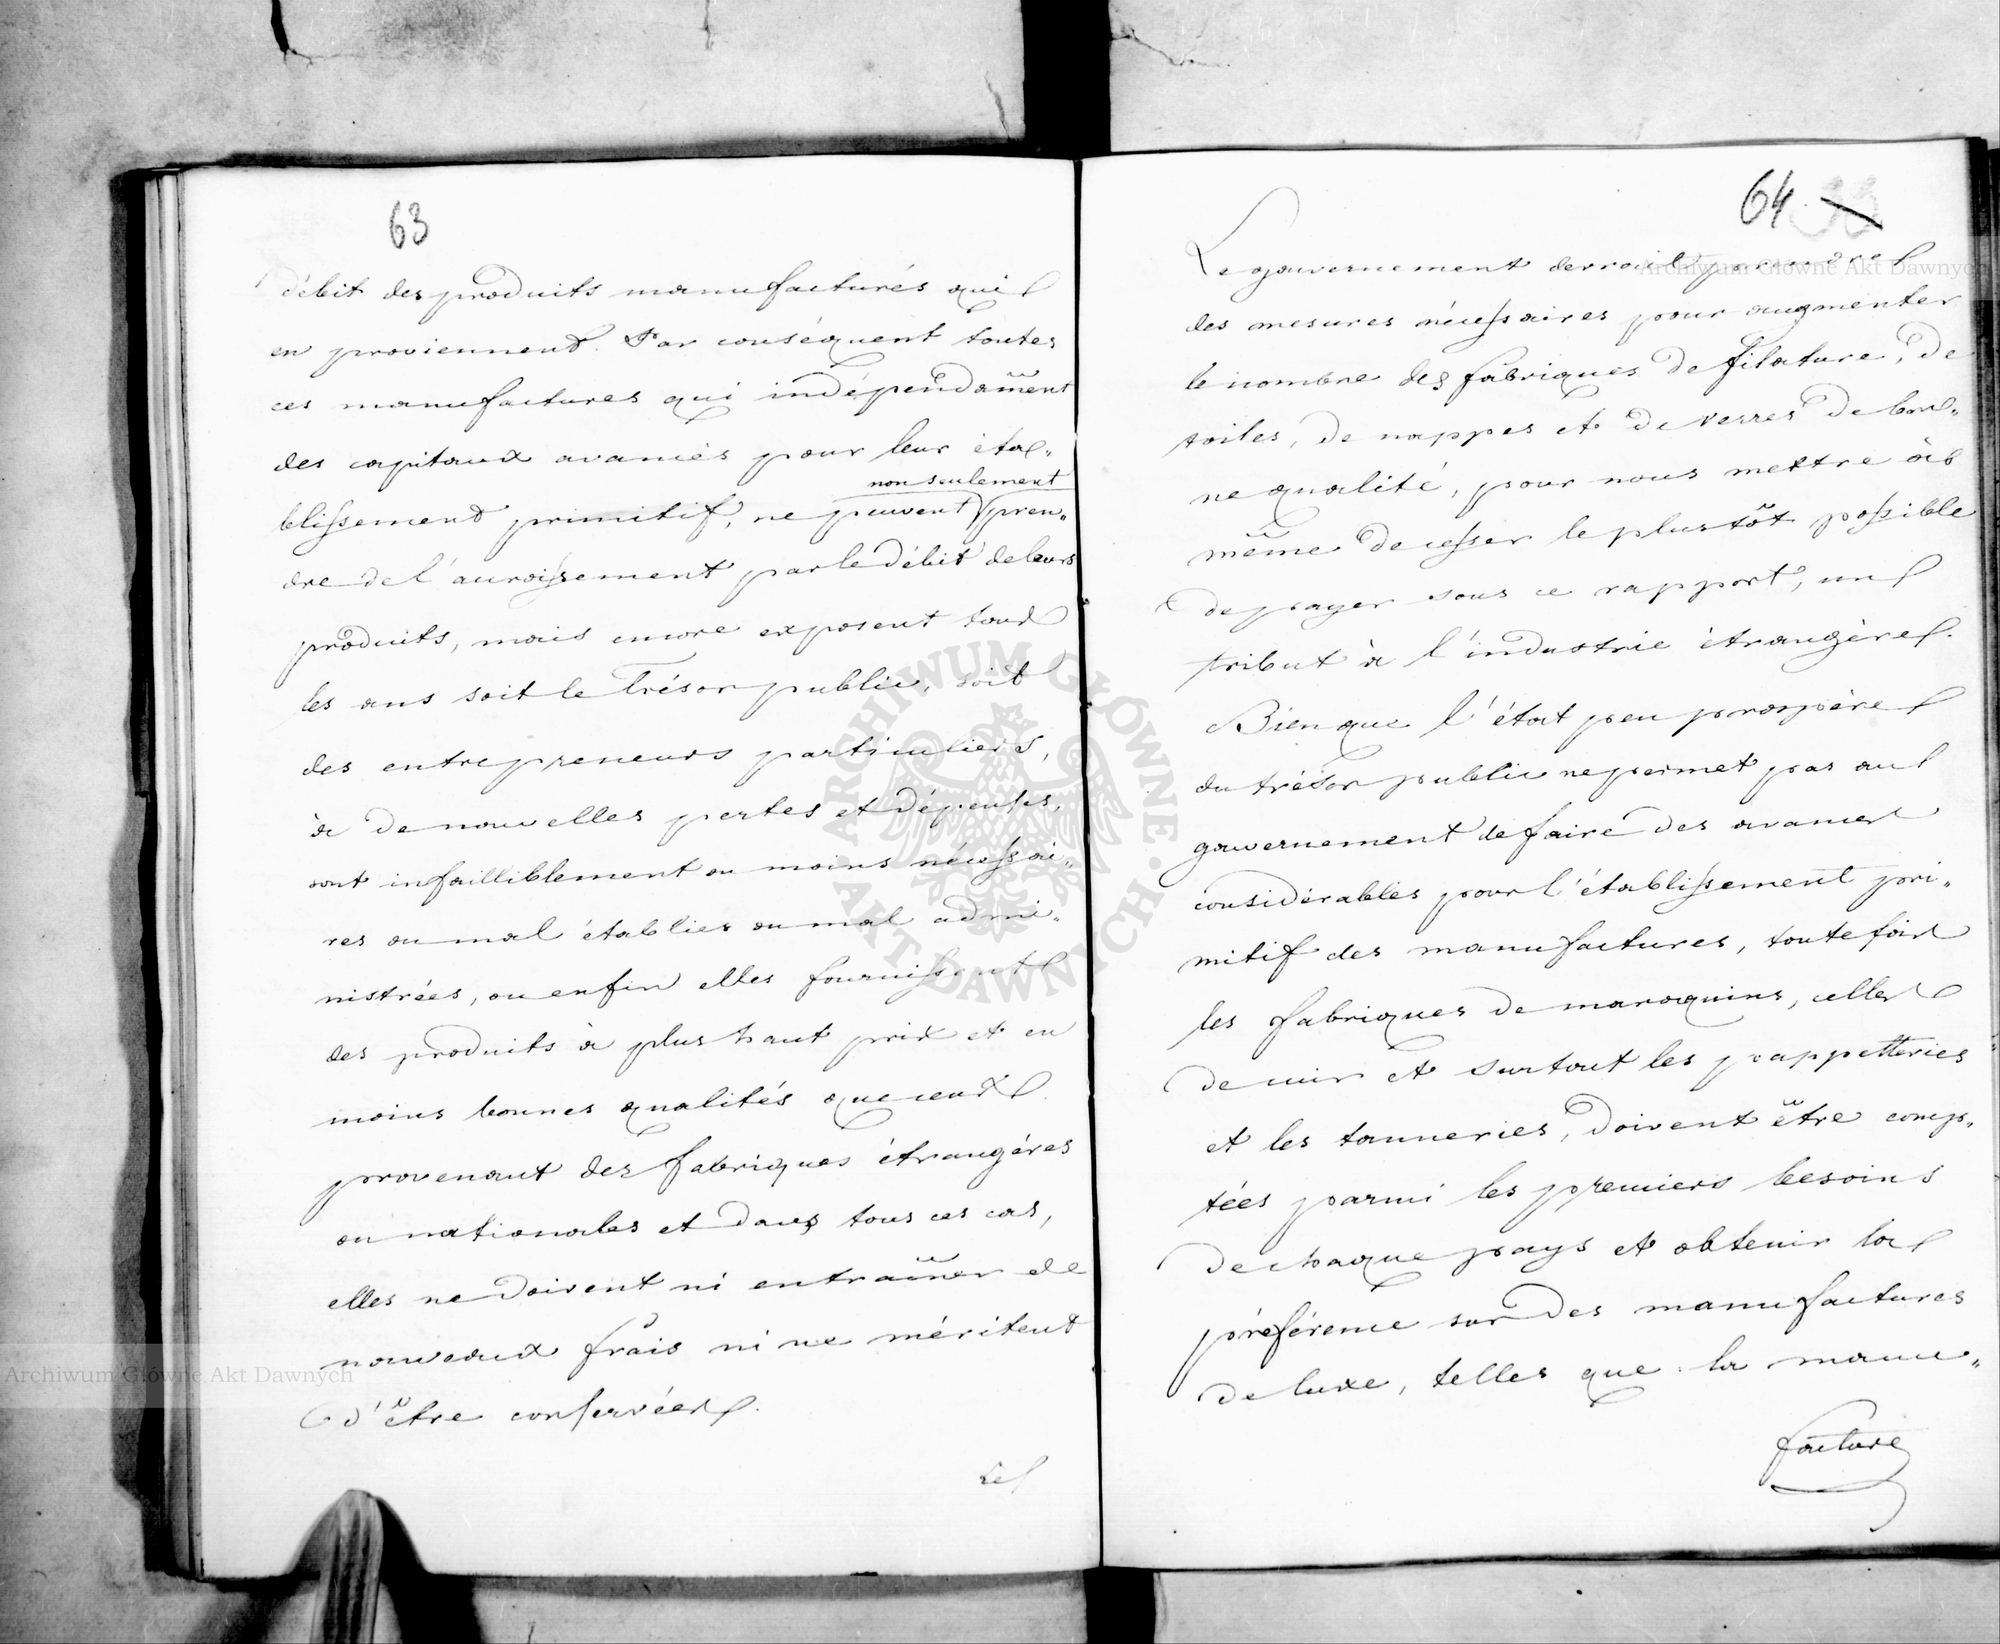 63
débit des produits manufacturés qui
en proviennent. Par conséquent toutes
ces manufactures qui indépendam̃ent
des capitaux avancés pour leur éta„
non seulement
blissement primitif, ne peuvent pren„
dre de l'accroissement par le débit de leurs
produits, mais encore exposent tous
les ans soit le Trésor public, soit
des entrepreneurs particuliers,
à de nouvelles pertes et dépenses,
sont infailliblement ou moins nécessai„
res ou mal établies ou mal admi„
nistrées, ou enfin elles fournissent
des produits à plus haut prix et en
moins bonnes qualités que ceux
provenant des fabriques étrangères
ou nationales et dans tous ces cas,
elles ne doivent ni entrainer de
nouveaux frais ni ne méritent
d'être conservées.
Le
64
Le gouvernement devrait prendre
des mesures nécessaires pour augmenter
le nombre des fabriques de filature, de
toiles, de nappes et de verres de bon„
ne qualité, pour nous mettre à
même de cesser le plustôt possible
de payer sous ce rapport, un
tribut à l'industrie étrangère.
Bien que l'état peu prospère
du trésor public ne permet pas au
gouvernement de faire des avances
considérables pour l'établissement pri„
mitif des manufactures, toutefois
les fabriques de maroquins, celles
de cuir et surtout les pappetteries
et les tanneries, doivent être comp„
tées parmi les premiers besoins
de chaque pays et obtenir la
préférence sur des manufactures
de luxe, telles que la manu„
facture
Archiwum Główne Akt Dawnych
Archiwum Główne Akt Dawnych
ARCHIWUM GŁÓWNE AKT DAWNYCH